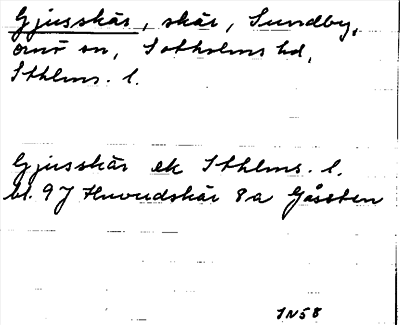 Gjusskär, skär, Sundby,
Ornö sn, Sotholms hd,
Sthlms. l.
Gjusskär ek Sthlms. l.
bl. 9J Huvudskär 8a Gåssten
IN58